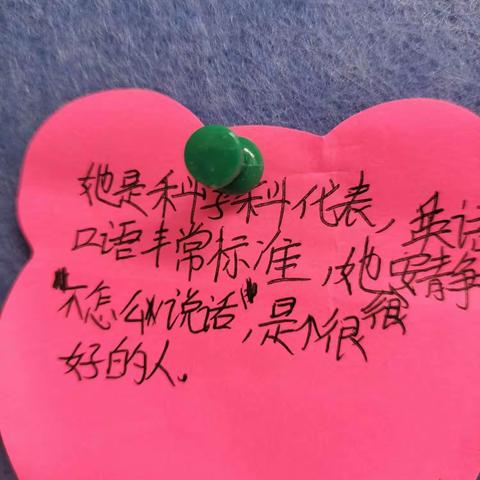 她是科学科代表，英语
口语非常标准，她安静
"不怎么说话"，是个很很
好的人。